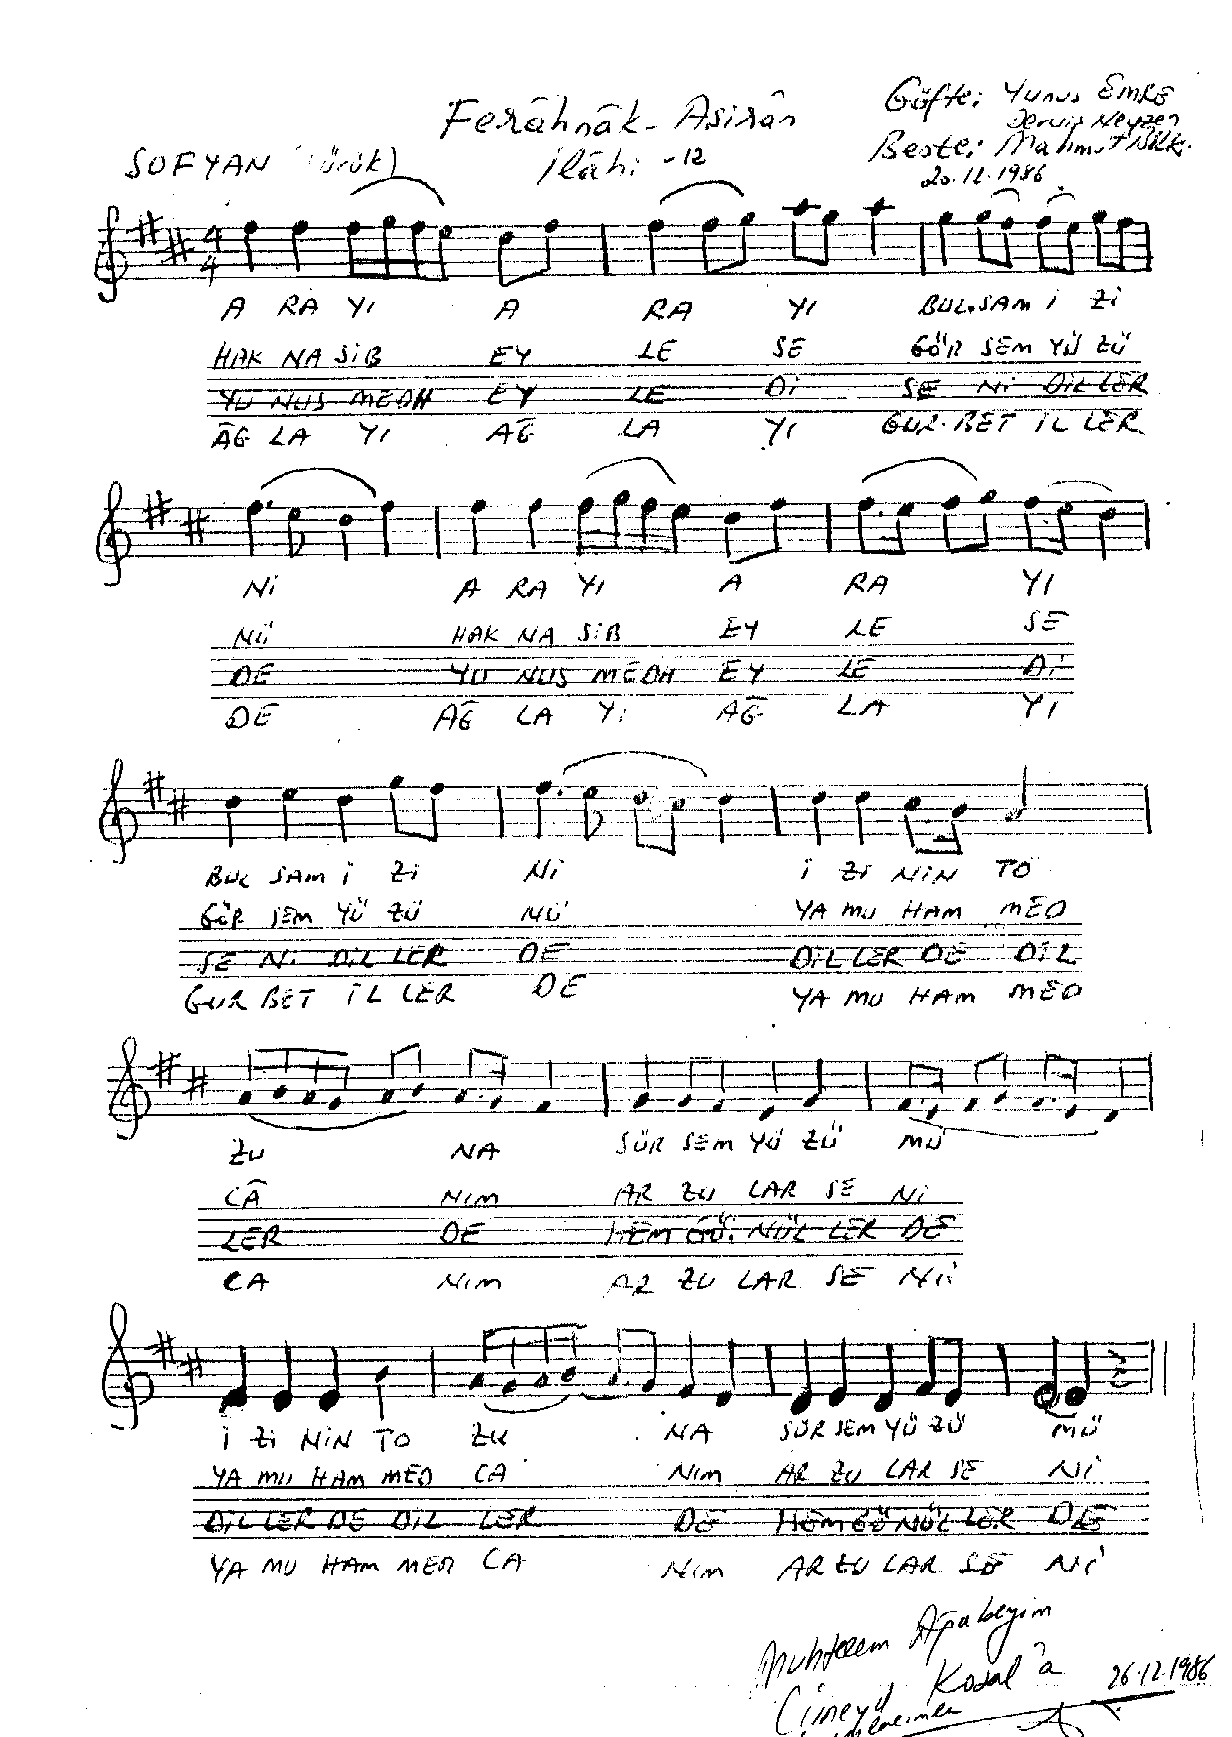 Ferâhnâk - Aşirân
Güfte: Yunus EMRE
Derviş Neyzen
SOFYAN (Yürük)
ilâhi - 12
Beste: Mahmut
20.12.1986
4
4
A RA YI A RA YI BUL.SAM İ Zİ
HAK NA SİB EY LE SE GÖR SEM YÜ ZÜ
YU NUS MEDH EY LE Dİ SE Nİ DİL LER
AĞ LA YI AĞ LA YI GUR.BET İL LER
Nİ A RA YI A RA YI
NÜ HAK NA SİB EY LE SE
DE YU NUS MEDH EY LE Dİ
DE AĞ LA YI AĞ LA YI
BUL SAM İ Zİ Nİ İ Zİ NİN TO
GÖR SEM YÜ ZÜ NÜ YA MU HAM MED
SE Nİ DİL LER DE DİL LER DE DİL
GUR BET İL LER DE YA MU HAM MED
ZU NA SÜR SEM YÜ ZÜ MÜ
CÂ NIM AR ZU LAR SE Nİ
LER DE HEM GÖ. NÜL LER DE
CA NIM AR ZU LAR SE Nİ
İ Zİ NİN TO ZU NA SÜR SEM YÜ ZÜ MÜ
YA MU HAM MED CA NIM AR ZU LAR SE Nİ
DİL LER DE DİL LER DE HEM GÖ NÜL LER DE
YA MU HAM MED CA NIM AR ZU LAR SE Nİ
Muhterem Ağabeyim
Cüneyd Kosal'a 26.12.1986